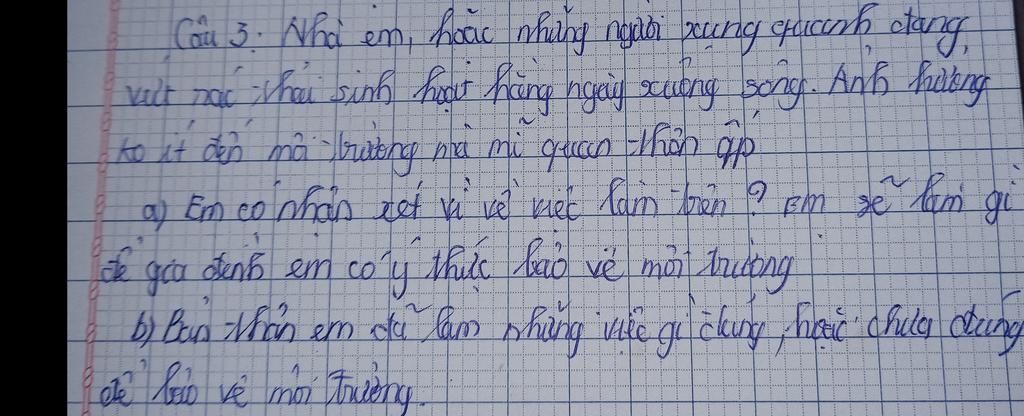 Câu 3: Nhà em, hoặc những người xung quanh đang,
vứt rác thải sinh hoạt hằng ngày xuống sông. Ảnh hưởng
ko ít đến môi trường mà mĩ quan thôn ấp
a) Em có nhận xét vì về việc làm trên? Em sẽ làm gì
để gia đình em có ý thức bảo vệ môi trường
b) Bản thân em đã làm những việc gì đúng, hoặc chưa đúng
để bảo vệ môi trường.